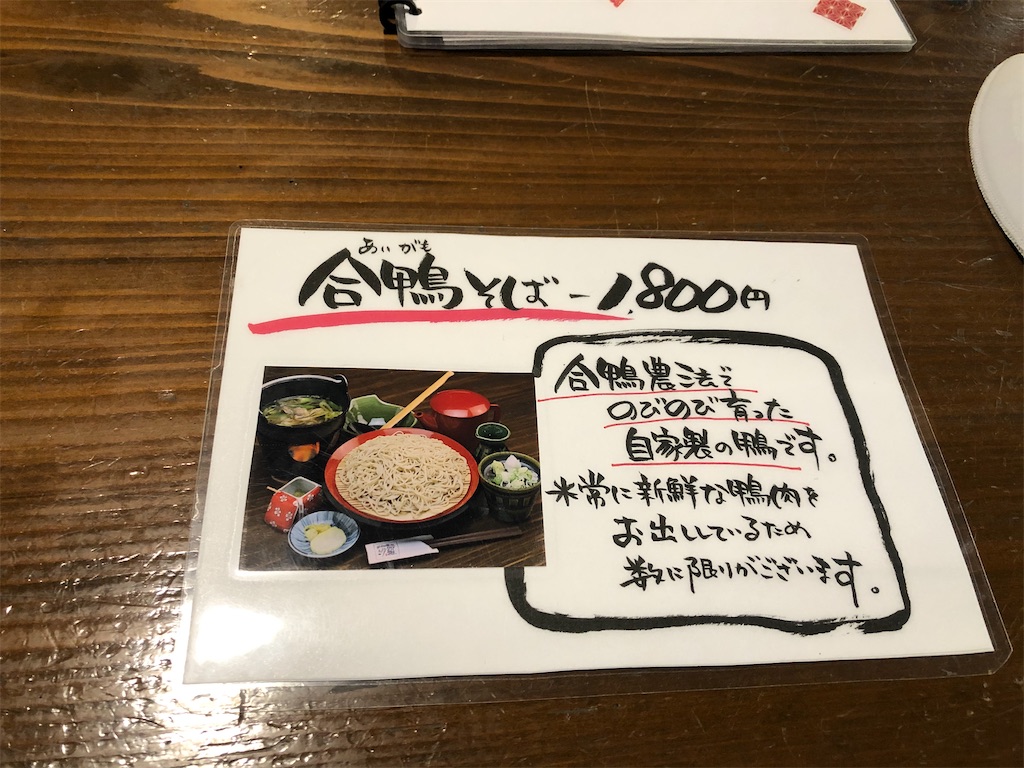 あいがも
合鴨そば－1,800円
合鴨農法で
のびのび育った
自家製の鴨です。
※常に新鮮な鴨肉を
お出ししているため
数に限りがございます。